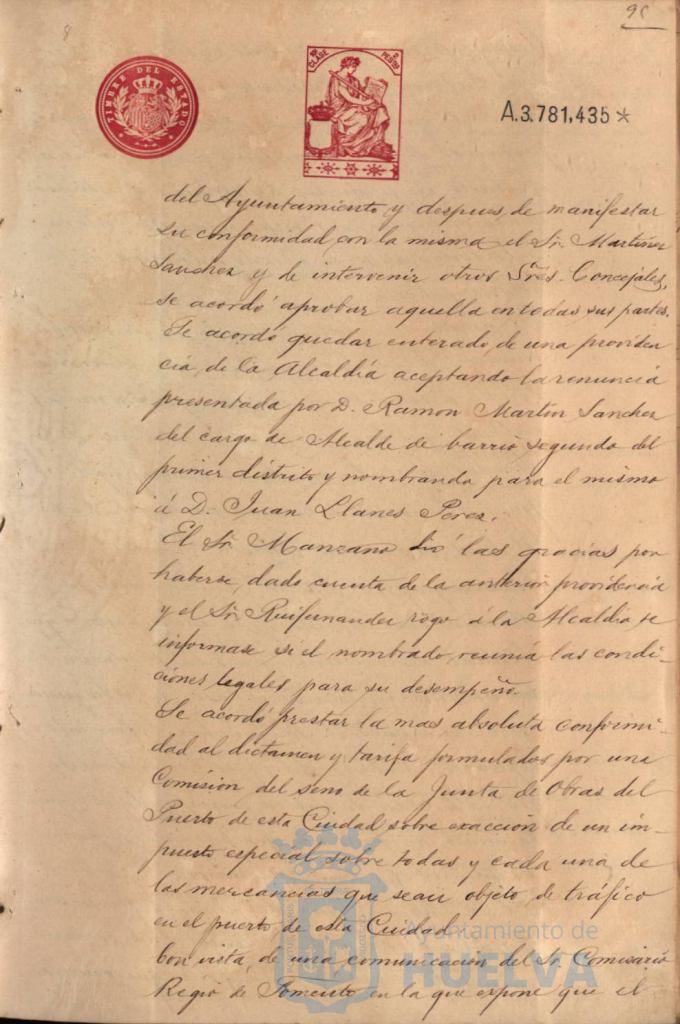 95
8
TIMBRE DEL ESTADO
10ª CLASE 2 PESETAS
A.3.781,435*
del Ayuntamiento y despues de manifestar
su conformidad con la misma el Sr. Martinez
Sanchez y de intervenir otros Sres. Concejales,
se acordó aprobar aquella en todas sus partes.
Se acordó quedar enterado de una providen
cia de la Alcaldía aceptando la renuncia
presentada por D. Ramon Martin Sanchez
del cargo de Alcalde de barrio segundo del
primer distrito y nombrando para el mismo
á D. Juan Llanes Perez.
El Sr. Manzano dió las gracias por
haberse dado cuenta de la anterior providencia
y el Sr. Ruifernandez rogo á la Alcaldia se
informase si el nombrado reunia las condi-
ciones legales para su desempeño.
Se acordó prestar la mas absoluta conformi-
dad al dictamen y tarifa formulados por una
Comisión del seno de la Junta de Obras del
Puerto de esta Ciudad sobre exacción de un im-
puesto especial sobre todas y cada una de
las mercancías que sean objeto de tráfico
en el puerto de esta Ciudad.
Con vista de una comunicación del Sr. Comisario
Regio de Fomento en la que expone que el
Ayuntamiento de
HUELVA